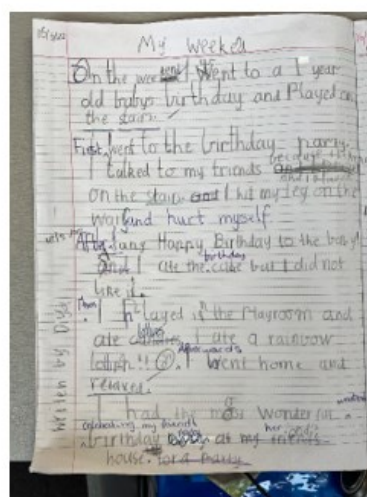 My weekend
On the weekend I went to a 1 year
old babys birthday and Played on
the stairs.
First, I went to the birthday party.
I talked to my friends because
on the stairs and I hit my leg on the
wall and hurt myself
After I sang Happy Birthday to the baby
and I ate the birthday cake but I did not
like it.
Then I Played in the Playroom and
ate lollies I ate a rainbow
Afterwards I went home and
relaxed.
I had the most wonderful
celebrating my friend's
birthday at my friends
house. for a party
Written by